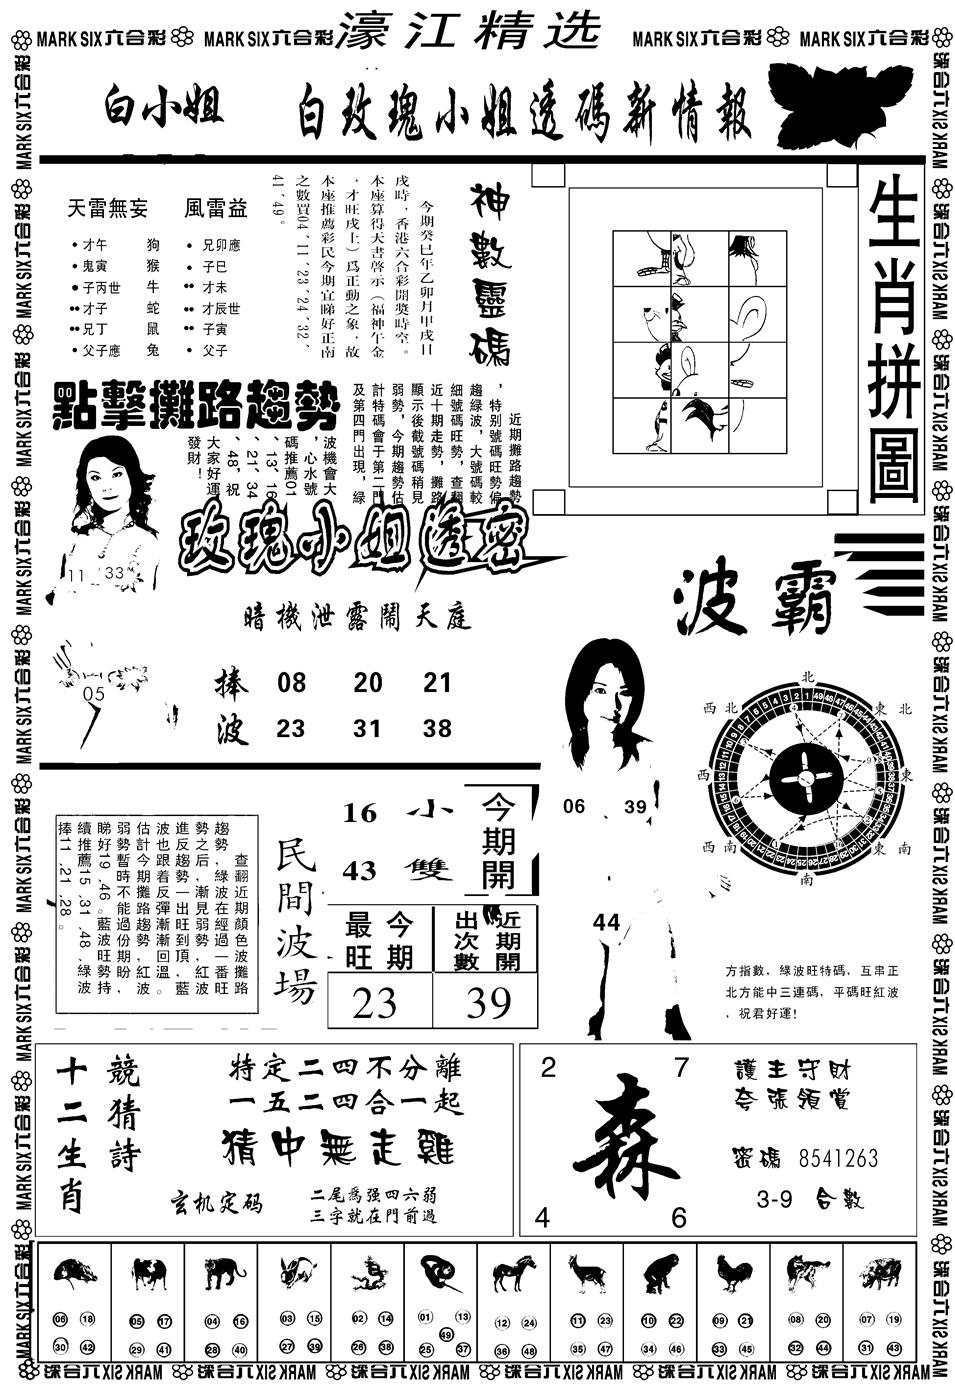 濠江精选
MARK SIX六合彩 MARK SIX六合彩 MARK SIX六合彩 MARK SIX六合彩
白小姐 白玫瑰小姐透碼新情報
天雷無妄 風雷益
才午 狗 兄卯應
鬼寅 猴 子巳
子丙世 牛 才未
才子 蛇 才辰世
兄丁 鼠 子寅
父子應 兔 父子
神數靈碼
今期癸巳年乙卯月甲戌日
戌時，香港六合彩開獎時空。
本座算得天書啓示（福神午金
，才旺戌上）爲正動之象，故
本座推薦彩民今期宜睇好正南
之數買04、11、23、24、32、
41、49。
生肖拼圖
點擊攤路趨勢
近期攤路趨勢
，特别號碼旺勢偏
趨緑波，大號碼較
細號碼旺勢，查翻
近十期走勢，攤路
顯示後截號碼稍見
弱勢，今期趨勢估
計特碼會于第二門
及第四門出現，緑
波機會大
，心水號
碼推薦01
、13、16
、21、34
、48，祝
大家好運
發財！
11 33
05
玫瑰小姐透密
暗機泄露鬧天庭
捧 08 20 21
波 23 31 38
波霸
06 39
44
北
西北 東北
西 東
西南 東南
南
方指數，緑波旺特碼，互串正
北方能中三連碼，平碼旺紅波
，祝君好運！
查翻近期顔色波攤路
趨勢，緑波在經過一番旺
勢之后，漸見弱勢，紅波
進反趨勢一出旺到頂，藍
波也跟着反彈漸漸回溫。
估計今期攤路趨勢，紅波
弱勢暫時不能過份期盼，
睇好19、46。藍波旺勢持
續推薦15、31、48，緑波
捧11、21、28。
民間波場
16 小
43 雙
今期開
今期最旺 近期開出次數
23 39
十二生肖
競猜詩
特定二四不分離
一五二四合一起
猜中無走雞
玄机定码
二尾爲强四六弱
三字就在門前過
2 7
森
4 6
護主守財
夸張領賞
密碼 8541263
3-9 合數
06 18 05 17 04 16 03 15 02 14 01 13 12 24 11 23 10 22 09 21 08 20 07 19
49
30 42 29 41 28 40 27 39 26 38 25 37 36 48 35 47 34 46 33 45 32 44 31 43
MARK SIX六合彩 MARK SIX六合彩 MARK SIX六合彩 MARK SIX六合彩 MARK SIX六合彩 MARK SIX六合彩